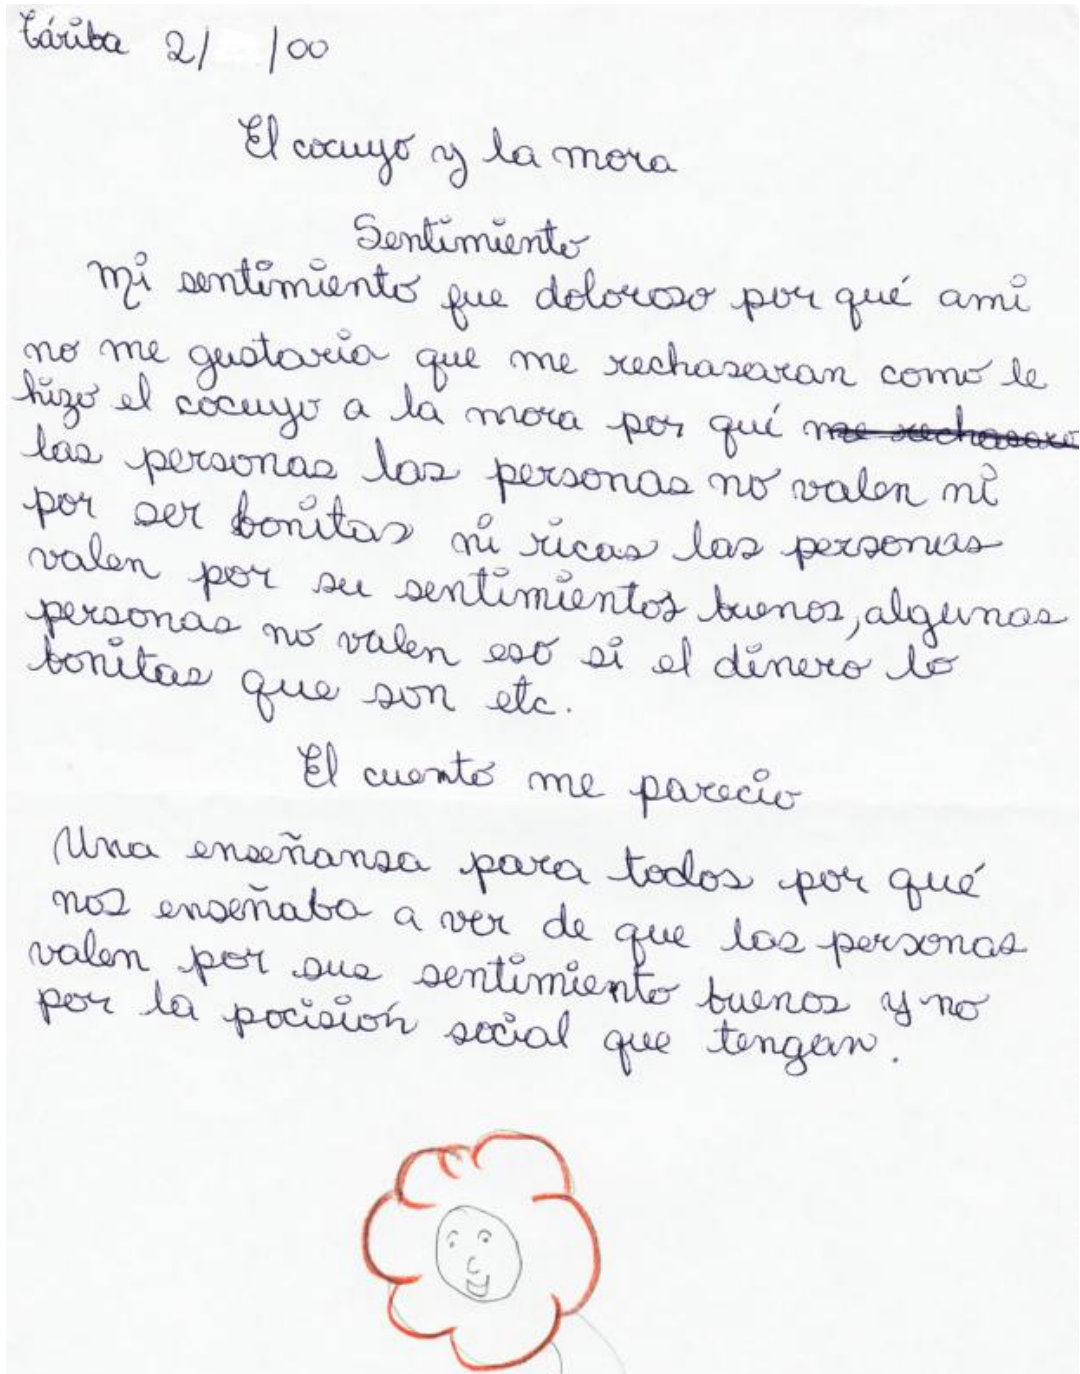 Táriba 2/ /00
El cocuyo y la mora
Sentimiento
mi sentimiento fue doloroso por qué ami
no me gustaria que me rechasaran como le
hizo el cocuyo a la mora por qué me rechasara
las personas las personas no valen ni
por ser bonitas ni ricas las personas
valen por su sentimientos buenos, algunas
personas no valen eso si el dinero lo
bonitas que son etc.
El cuento me parecio
Una enseñansa para todos por qué
nos enseñaba a ver de que las personas
valen por sus sentimiento buenos y no
por la pocisión social que tengan.